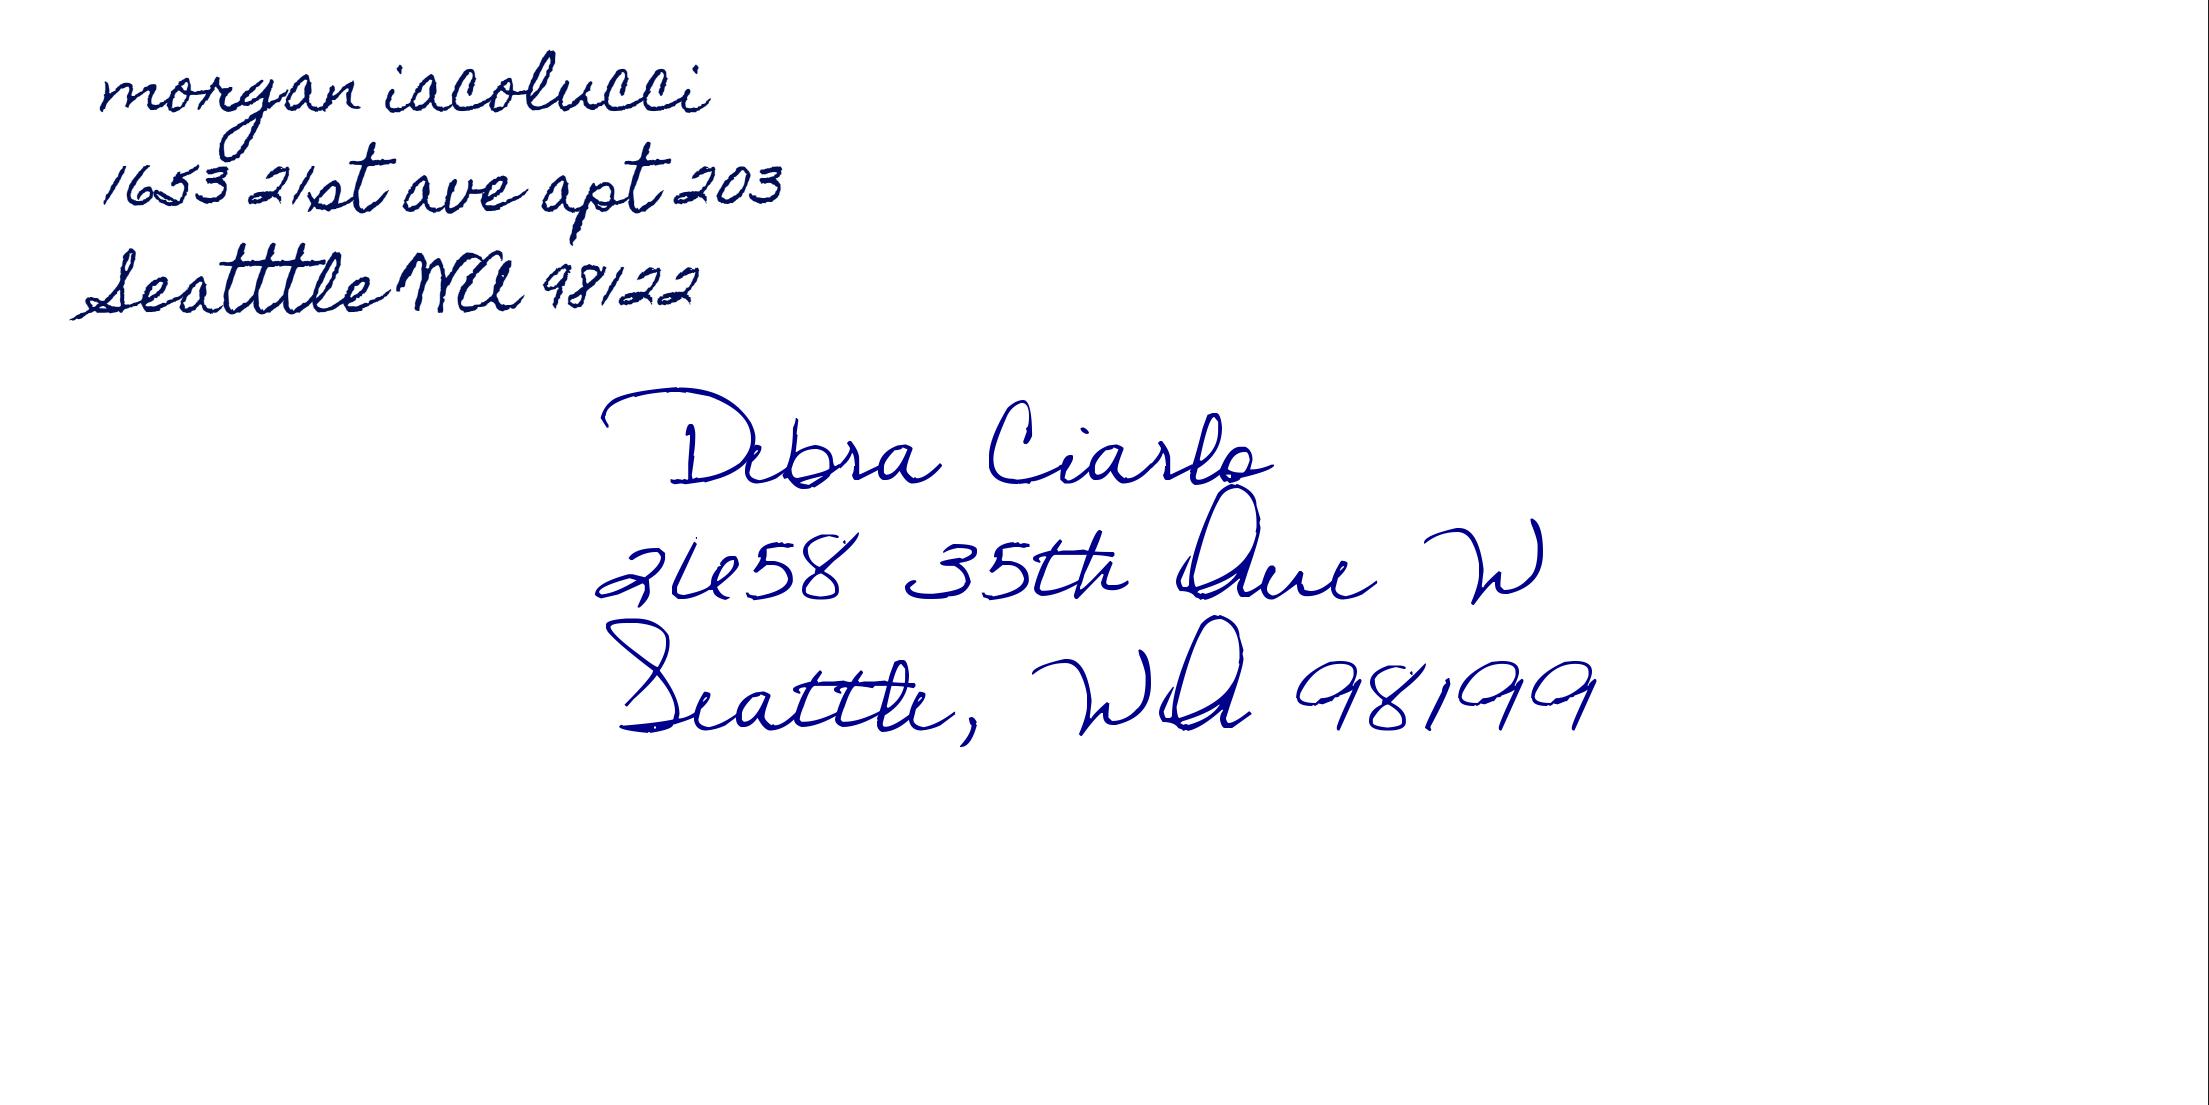 morgan iacolucci
1653 21st ave apt 203
Seatttle WA 98122
Debra Ciarlo
2658 35th Ave W
Seattle, WA 98199